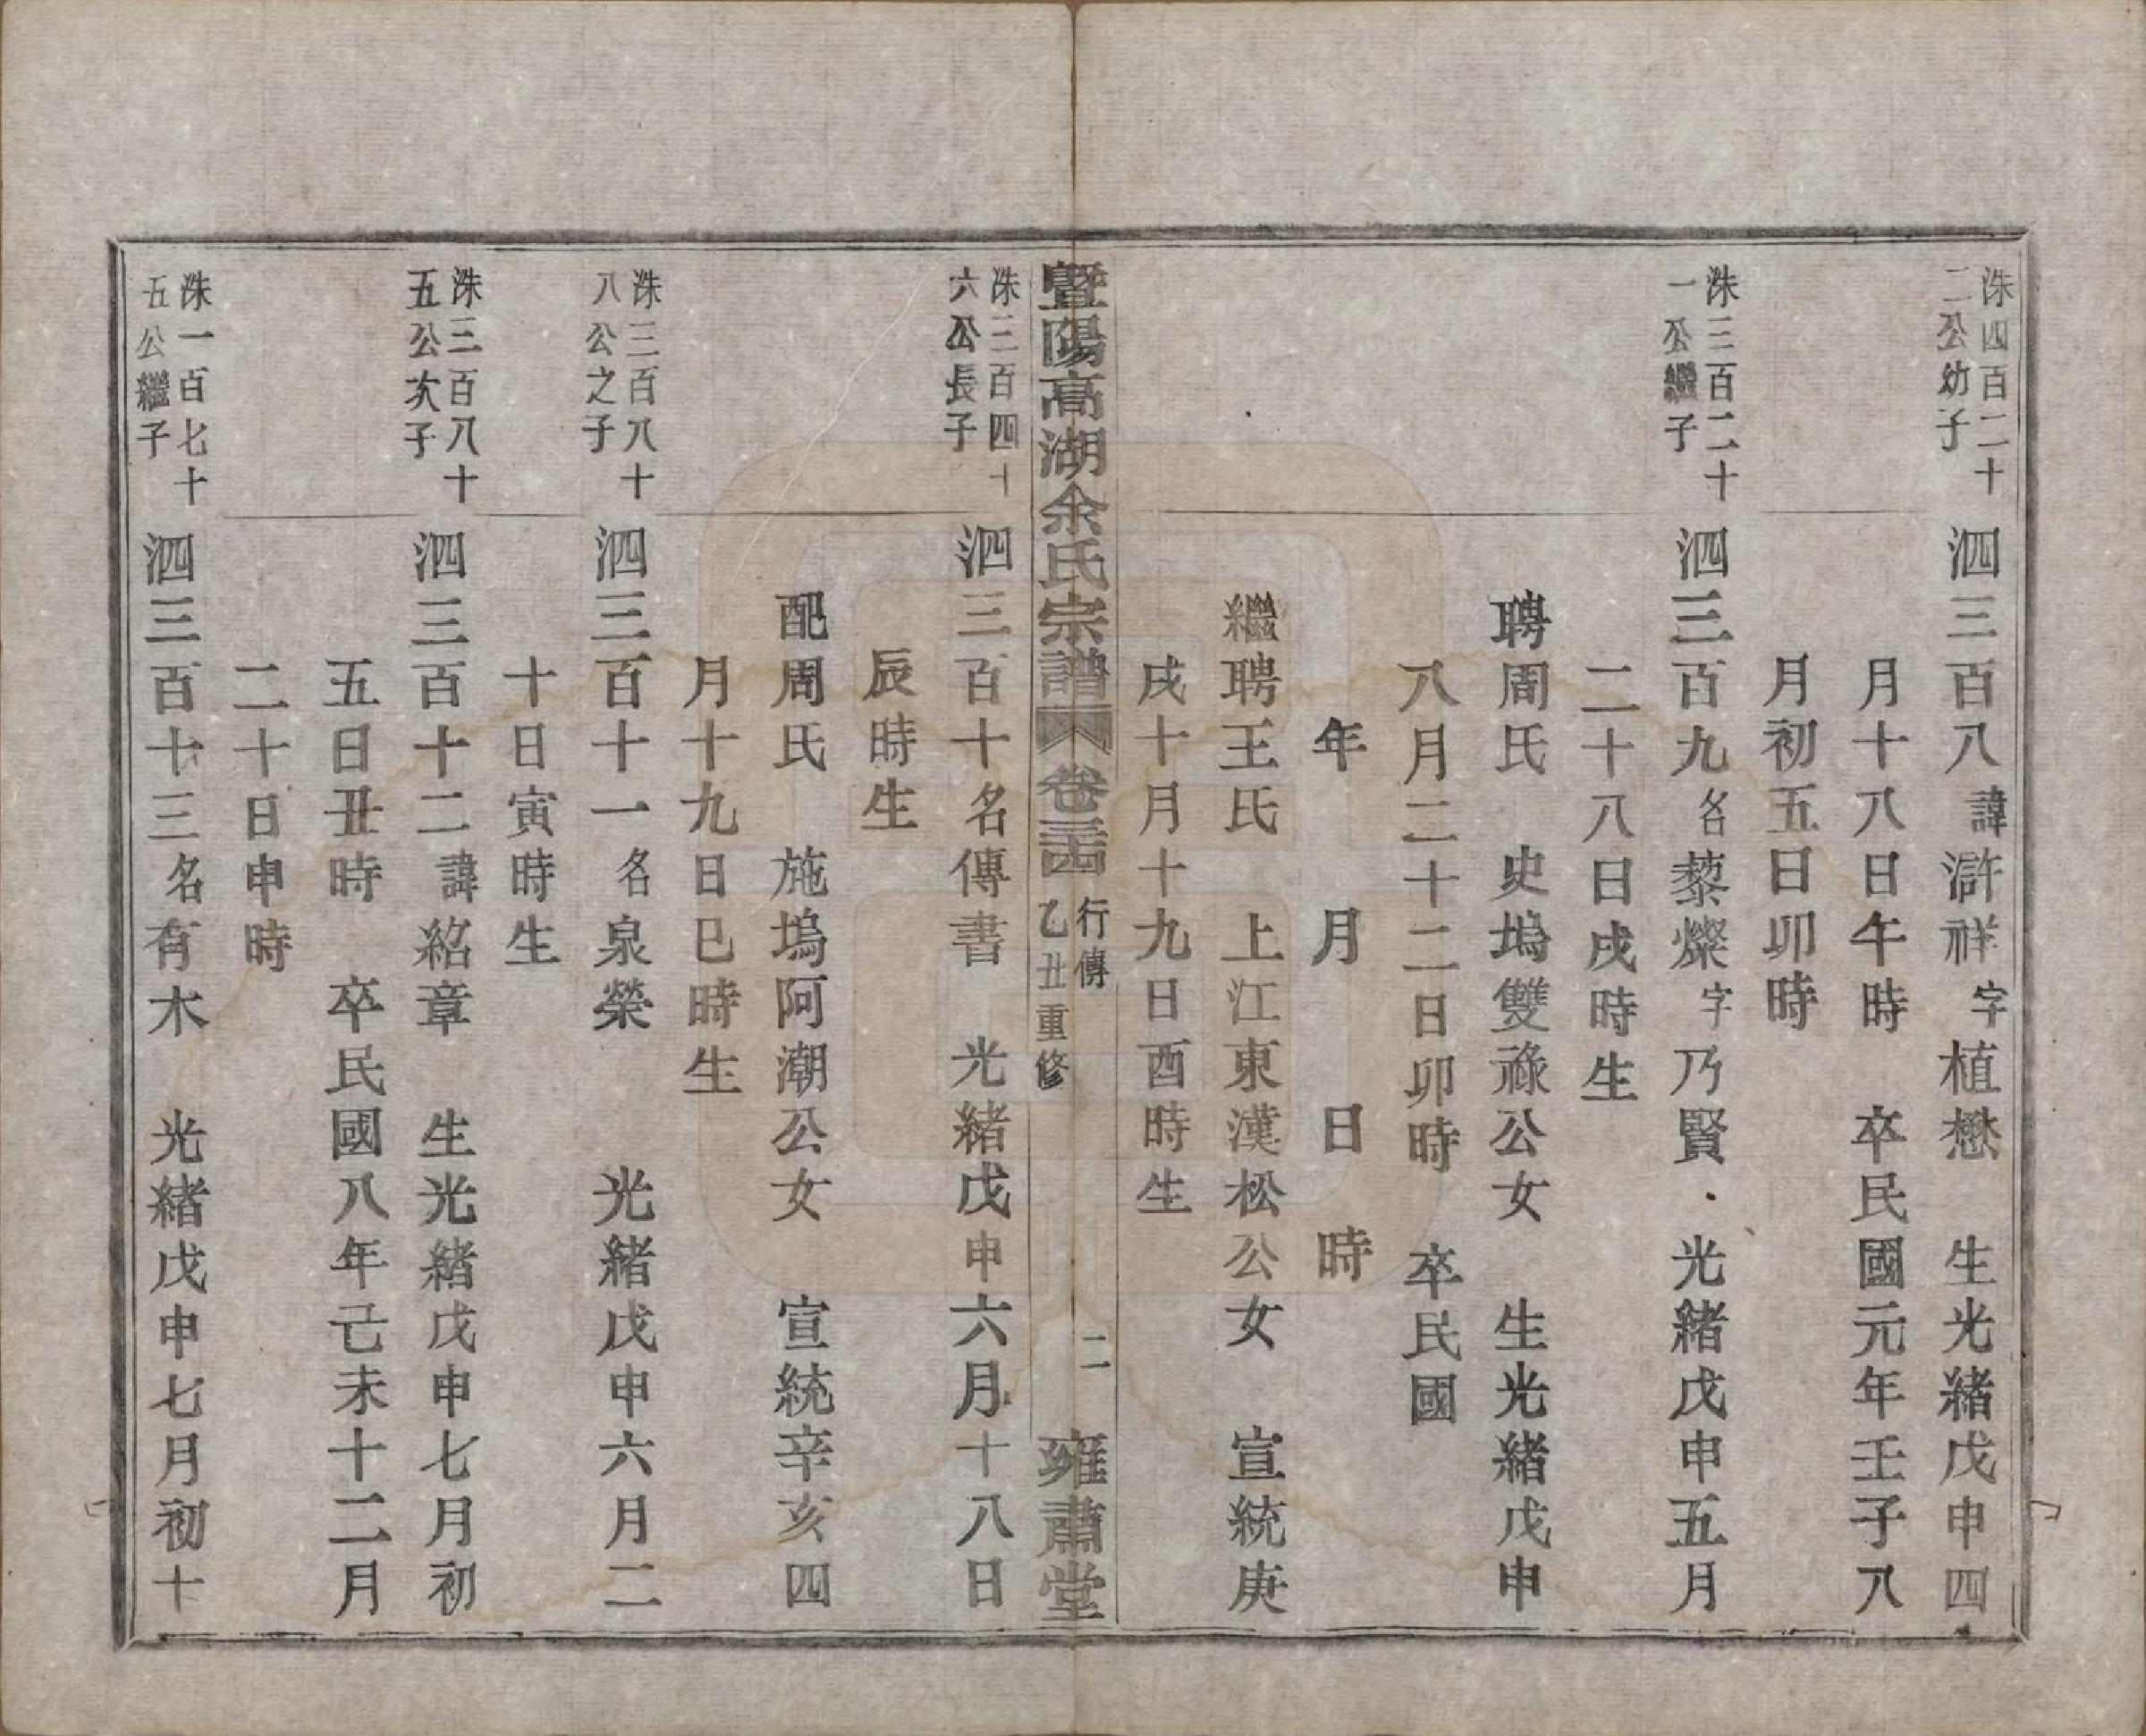 洙四百二十
二公幼子
泗三百八諱滸祥字植懋　生光緒戊申四
月十八日午時　卒民國元年壬子八
月初五日卯時
洙三百二十
一公繼子
泗三百九名藜燦字乃賢　光緒戊申五月
二十八日戌時生
聘周氏　史塢雙祿公女　生光緒戊申
八月二十二日卯時　卒民國
年　月　日　時
繼聘王氏　上江東漢松公女　宣統庚
戌十月十九日酉時生
暨陽高湖余氏宗譜　卷三十四　行傳　乙丑重修　二　雍肅堂
洙三百四十
六公長子
泗三百十名傳書　光緒戊申六月十八日
辰時生
配周氏　施塢阿潮公女　宣統辛亥四
月十九日巳時生
洙三百八十
八公之子
泗三百十一名泉榮　光緒戊申六月二
十日寅時生
洙三百八十
五公次子
泗三百十二諱紹章　生光緒戊申七月初
五日丑時　卒民國八年己未十二月
二十日申時
洙一百七十
五公繼子
泗三百十三名有木　光緒戊申七月初十